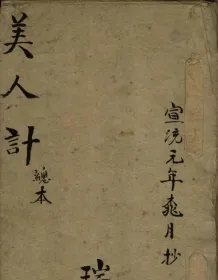 宣統元年桃月抄
美人計
總本
瑞